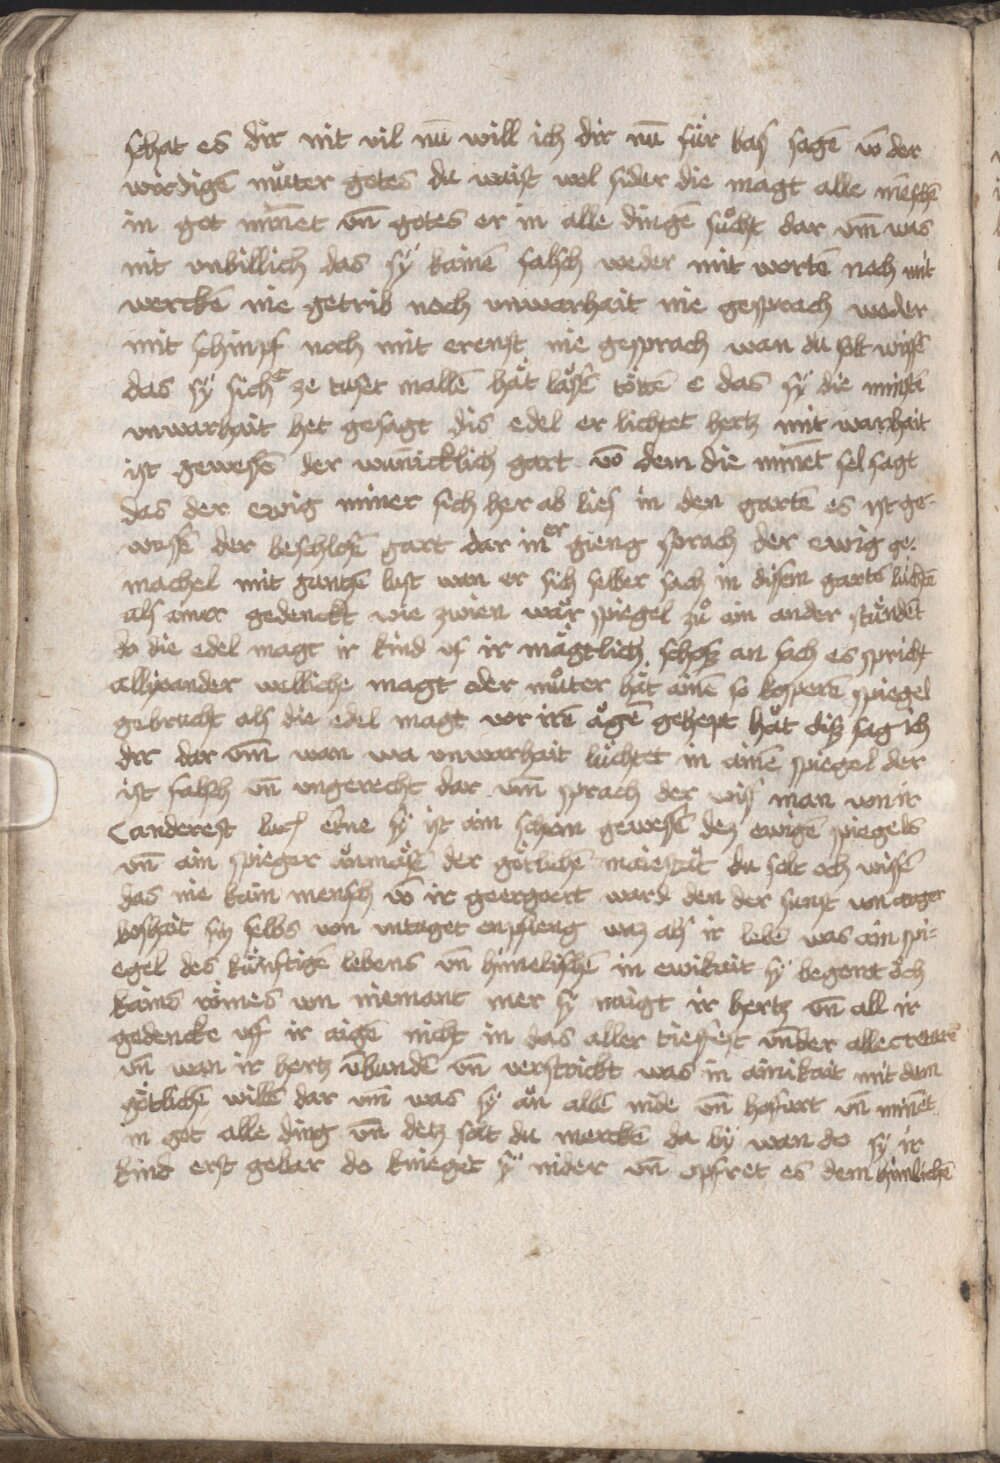 schat es dir nit vil nū will ich dir nū für bas sagē vō der
wirdigē můter gotes du waist wol sider die magt alle mēschē
in got minnet vn̄ gotes er in alle dingē sůcht dar vm̄ was
nit vnbillich das sÿ kainē falsch weder mit wortē noch mit
werckē nie getrib noch vnwarhait nie gesprach weder
mit schimpf noch mit ernst nie gesprach wan du solt wissē
das sÿ sich ze tuset mallē hät lassē tötē e das sÿ die minstē
vnwarhait het gesagt dis edel er lichtet hertz mit warhait
ist gewessē der wunnicklich gart vō dem die minnet sel sagt
das der ewig miner sich her ab lies in den gartē es ist ge-
wessē der beschlosē gart dar in er gieng sprach der ewig ge-
machel mit gantzē lust wan er sich selber sach in disem gartē lüchtē
als ainer gedenckt wie zwien wär spiegel zů ain ander stůndēt
do die edel magt ir kind vf ir mägtlich schosz an sach es spricht
allixander welliche magt oder můter hät ainē so kosperē spiegel
gebrucht als die edel magt vor irē ǒgē gehept hät disz sag ich
dir dar vm̄ wan wa vnwarhait lüchtet in ainē spiegel der
ist falsch vn̄ vngerecht dar vm̄ sprach der wiss man von ir
Canderest luc̄ etne sÿ ist ain schein gewesē dez ewigē spiegels
vn̄ ain spiegar ǎnmǎsē der götlichē maiestät du solt och wissē
das nie kain mensch vō ir geergert ward den der sunst von aiger
boshait sin selbs von vntuget enpfieng waz als ir lebē was ain spi-
egel des künftigē lebens vn̄ himelischē in ewikait sÿ begert och
kains rǒmes von niemant mer sÿ naigt ir hertz vn̄ all ir
gedencke vff ir aigē nicht in das aller tieffest vnder alle creaturē
vn̄ wan ir hertz v̄bundē vn̄ verstrickt was in ainikait mit dem
götlichē willē dar vm̄ was sÿ ǎn allē nide vn̄ hofart vn̄ minnet
in got alle ding vn̄ detz solt du merckē da bÿ wan do sÿ ir
kind erst gebar do knieget sÿ nider vn̄ opfret es dem himlichē